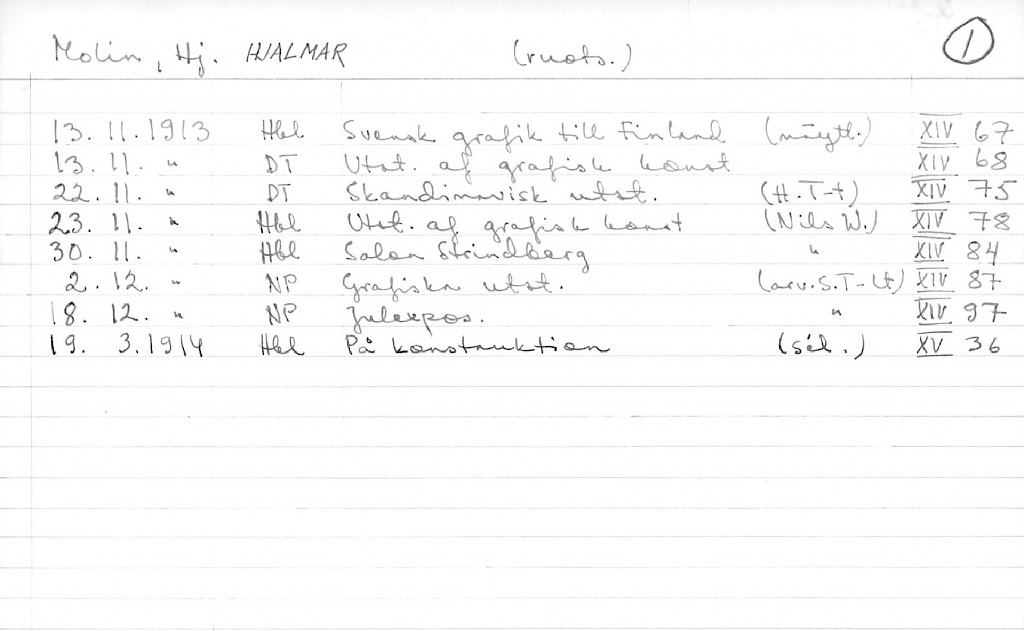 Molin, Hj. HJALMAR (ruots.) 1
13. 11. 1913 Hbl Svensk grafik till Finland (näytt.) XIV 67
13. 11. " DT Utst. af grafisk konst XIV 68
22. 11. " DT Skandinavisk utst. (H. T-t) XIV 75
23. 11. " Hbl Utst. af grafisk konst (Nils W.) XIV 78
30. 11. " Hbl Salon Strindberg " XIV 84
2. 12. " NP Grafiska utst. (arv. S. T-lt) XIV 87
18. 12. " NP Julexpos. " XIV 97
19. 3. 1914 Hbl På konstauktion (sel.) XV 36